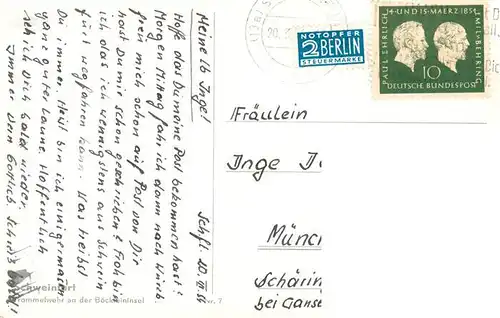 Meine lb Inge!
Schft. 20.
Hoffe das Du meine Post bekommen hast!
Morgen Mittag fahr ich dann nach Würzb.
freu mich schon auf Post von Dir
hast Du mir schon geschrieben? Froh bin
ich das ich wenigstens aus Schwein
furt wegfahren kann. Was treibst
Du immer. Heut bin ich einigermaßen
ganz guter Laune. Hoffentlich
seh ich Dich bald wieder.
Immer Dein Gottlieb. Schreib bald!
20.
NOTOPFER
2 BERLIN
STEUERMARKE
PAUL EHRLICH
14·UND 15·MAERZ 1854
EMIL v. BEHRING
10
DEUTSCHE BUNDESPOST
Fräulein
Inge J
Münc
Schärin
bei Ganse
Schweinfurt
Trommelwehr an der Böckleininsel
Nr. 7